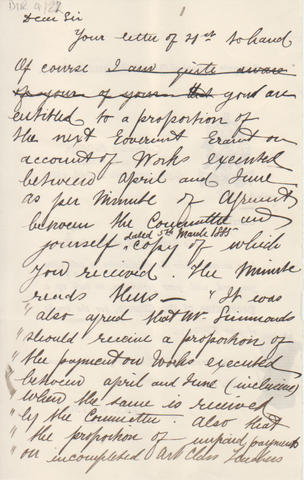 DIR 9/27
1
Dear Sir
Your letter of 21st to hand
Of course I am quite aware
that you are
entitled to a proportion of
the next Goverimt Grant on
account of Works executed
between April and June
as per Minute of Agrmnt
between the Committee and
yourself dated 5th March 1885 copy of which
you received. The Minute
reads thus — "It was
"also agreed that Mr. Simmonds
"should receive a proportion of
"the payment on Works executed
between april and June (inclusive)
"when the same is received
"by the Committee. Also that
"the proportion of unpaid payments
"on incompleted Art Class